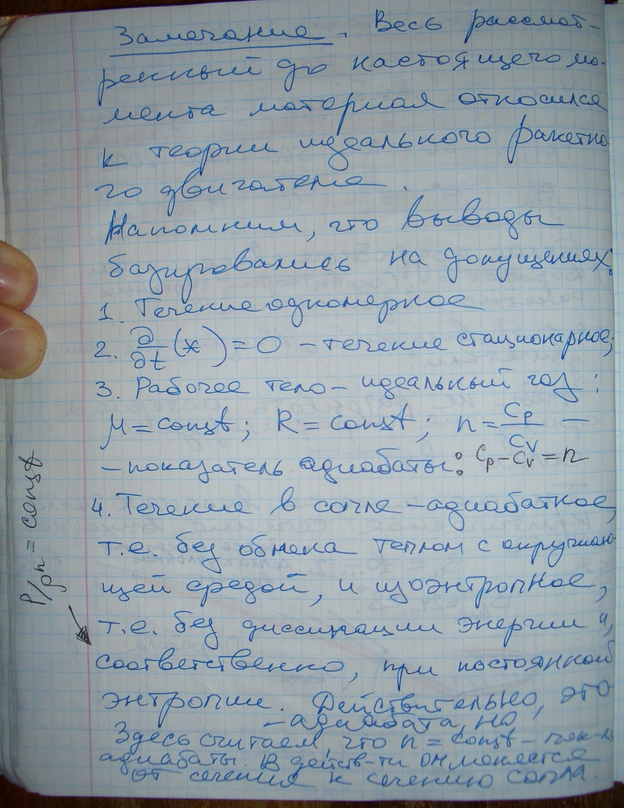 Замечание. Весь рассмот-
ренный до настоящего мо-
мента материал относился
к теории идеального ракетно
го двигателя.
Напомним, что выводы
базировались на допущениях:
1. Течение одномерное
2. ∂/∂t (*) = 0 – течение стационарное;
3. Рабочее тело – идеальный газ:
μ = const; R = const; n = Cp/Cv –
– показатель адиабаты: Cp – Cv = n
4. Течение в сопле – адиабатное,
т.е. без обмена теплом с окружаю-
щей средой, и изоэнтропное,
т.е. без диссипации энергии и,
соответственно, при постоянной
энтропии. Действительно, это
– адиабата, но
Здесь считаем, что n = const – пок-ль
адиабаты. В действ-ти он меняется
от сечения к сечению сопла.
P/ρn = const